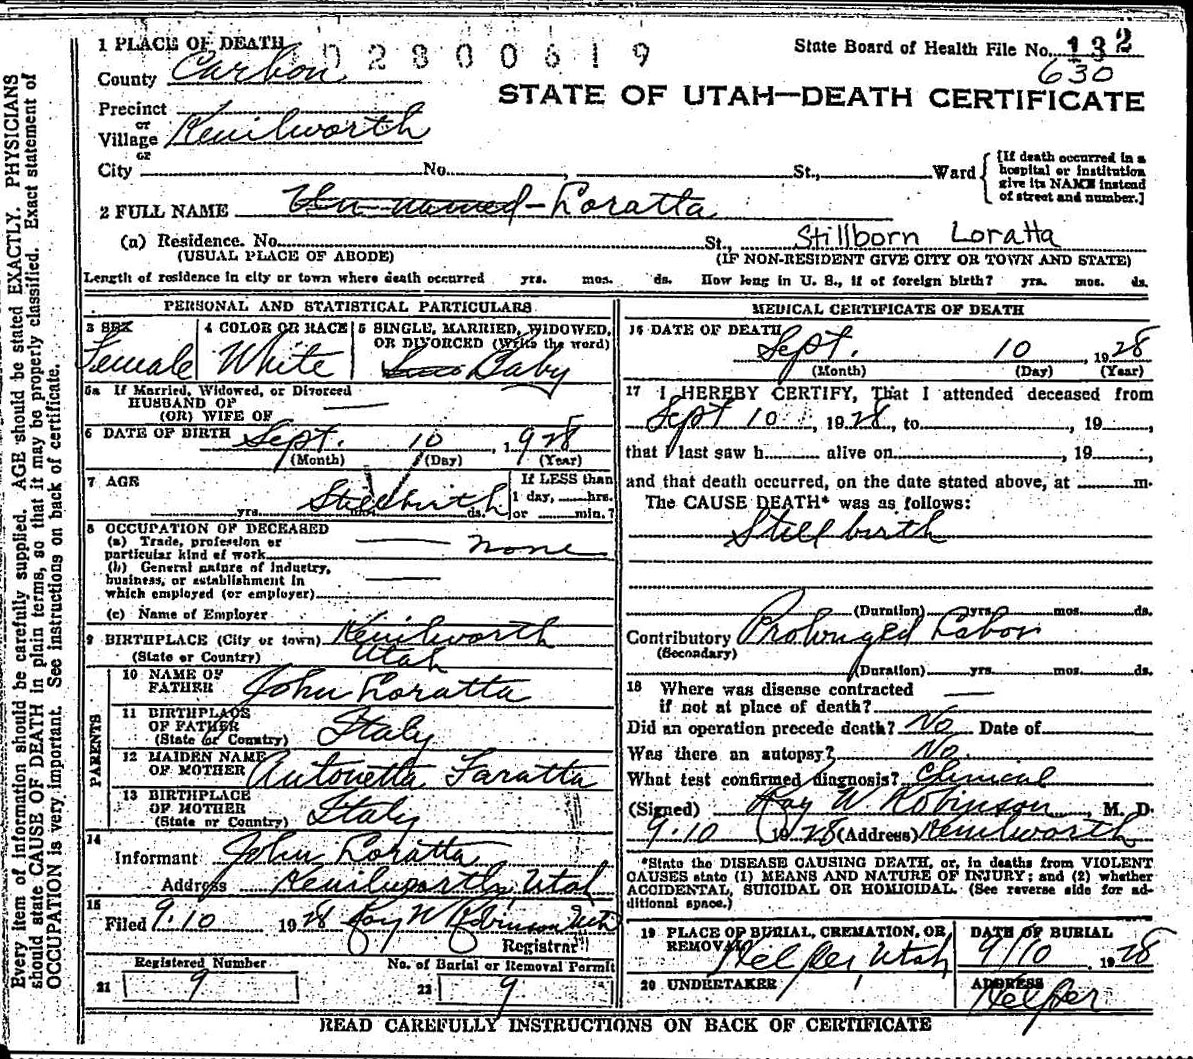 1 PLACE OF DEATH 02800619 State Board of Health File No. 132
County Carbon 630
STATE OF UTAH—DEATH CERTIFICATE
Precinct
or
Village Kenilworth
or
City No. , St., Ward {[If death occurred in a hospital or institution give its NAME instead of street and number.]
2 FULL NAME Un-named-Loratta
(a) Residence. No. St., Stillborn Loratta
(USUAL PLACE OF ABODE) (IF NON-RESIDENT GIVE CITY OR TOWN AND STATE)
Length of residence in city or town where death occurred yrs. mos. ds. How long in U. S., if of foreign birth? yrs. mos. ds.
PERSONAL AND STATISTICAL PARTICULARS
3 SEX 4 COLOR OR RACE 5 SINGLE, MARRIED, WIDOWED,
OR DIVORCED (Write the word)
Female White Baby
5a If Married, Widowed, or Divorced
HUSBAND OF
(OR) WIFE OF
6 DATE OF BIRTH Sept. 10, 1928
(Month) (Day) (Year)
7 AGE If LESS than
Stillbirth 1 day, hrs.
yrs. mos. ds. or min.?
8 OCCUPATION OF DECEASED
(a) Trade, profession or
particular kind of work none
(b) General nature of industry,
business, or establishment in
which employed (or employer)
(c) Name of Employer
9 BIRTHPLACE (City or town) Kenilworth
(State or Country) Utah
PARENTS
10 NAME OF
FATHER John Loratta
11 BIRTHPLACE
OF FATHER Italy
(State or Country)
12 MAIDEN NAME
OF MOTHER Antonetta Faratta
13 BIRTHPLACE
OF MOTHER Italy
(State or Country)
14
Informant John Loratta
Address Kenilworth, Utah
15
Filed 9-10 1928 Ray W Robinson
Registrar
Registered Number No. of Burial or Removal Permit
21 9 22 9
MEDICAL CERTIFICATE OF DEATH
16 DATE OF DEATH
Sept. 10, 1928
(Month) (Day) (Year)
17 I HEREBY CERTIFY, That I attended deceased from
Sept 10, 1928, to , 19 ,
that I last saw h alive on , 19 ,
and that death occurred, on the date stated above, at m.
The CAUSE DEATH* was as follows:
Still birth
(Duration) yrs. mos. ds.
Contributory Prolonged Labor
(Secondary)
(Duration) yrs. mos. ds.
18 Where was disease contracted
if not at place of death?
Did an operation precede death? No Date of
Was there an autopsy? No
What test confirmed diagnosis? Clinical
(Signed) Ray W Robinson, M. D.
9-10 1928 (Address) Kenilworth
*State the DISEASE CAUSING DEATH, or, in deaths from VIOLENT
CAUSES state (1) MEANS AND NATURE OF INJURY; and (2) whether
ACCIDENTAL, SUICIDAL OR HOMICIDAL. (See reverse side for ad-
ditional space.)
19 PLACE OF BURIAL, CREMATION, OR DATE OF BURIAL
REMOVAL Helper, Utah 9/10 1928
20 UNDERTAKER ADDRESS
Helper
READ CAREFULLY INSTRUCTIONS ON BACK OF CERTIFICATE
Every item of information should be carefully supplied. AGE should be stated EXACTLY. PHYSICIANS
should state CAUSE OF DEATH in plain terms, so that it may be properly classified. Exact statement of
OCCUPATION is very important. See instructions on back of certificate.